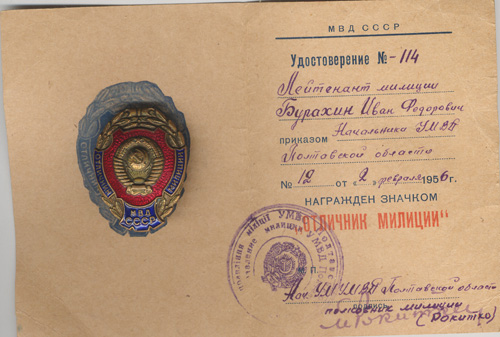 МВД СССР
Удостоверение № -114
Лейтенант милиции
Бурахин Иван Федорович
приказом Начальника УМВД
Полтавской области
№ 12 от 2 февраля 1956 г.
НАГРАЖДЕН ЗНАЧКОМ
"ОТЛИЧНИК МИЛИЦИИ"
М.П.
Нач. УМ УМВД Полтавской област
подпись
полковник милиции
(Рокитко)
МВД
СССР